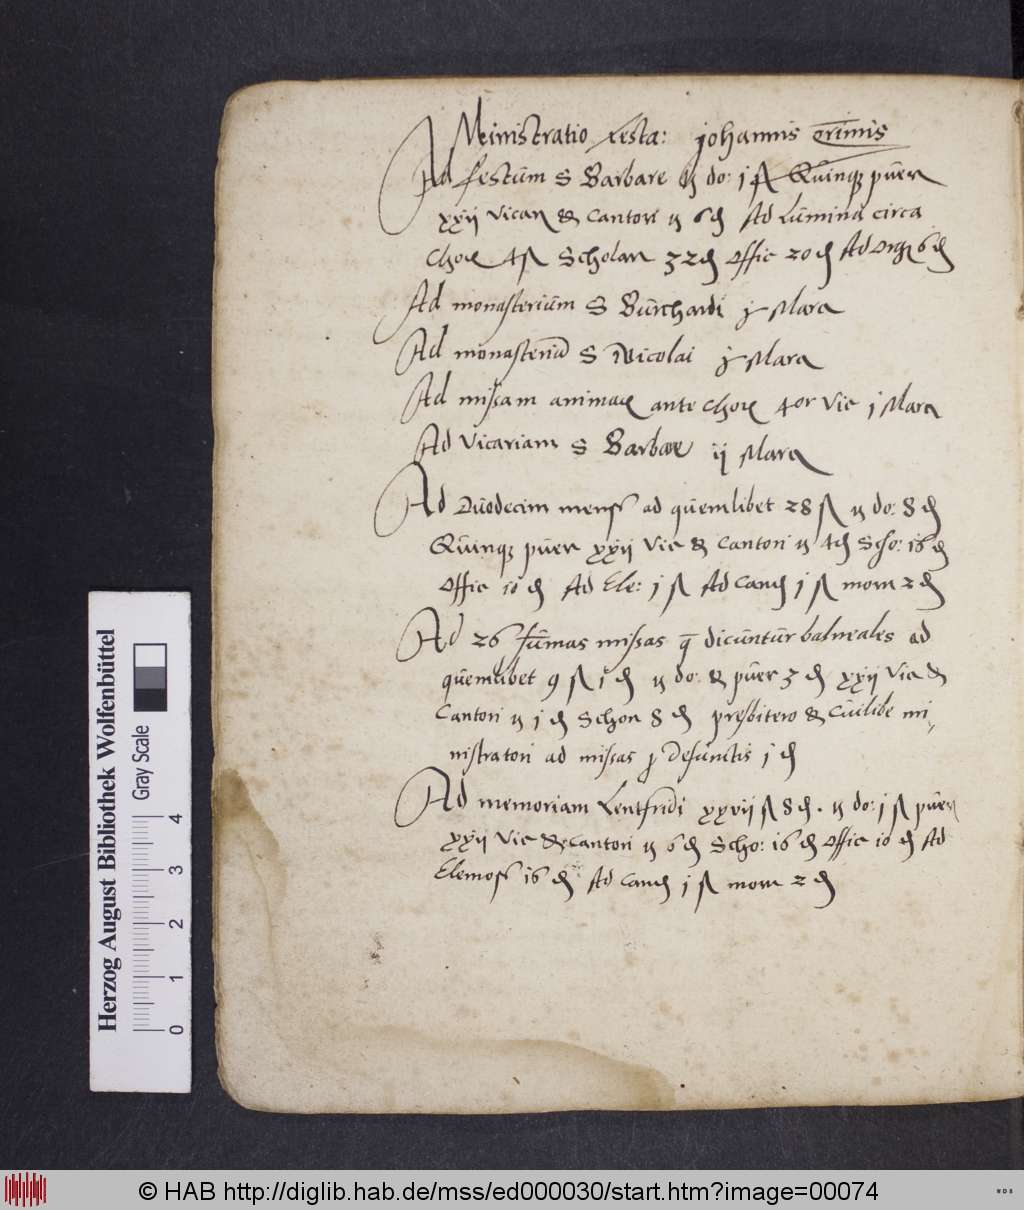 Ministratio testa: Johannis
Ad festum S Barbare do: j ß Quinq puer
xxij Vicar & Cantori 6 ₰ Ad Lumina circa
Chor 4 ß Scholar 32 ₰ Offic 20 ₰ Ad Org 6 ₰
Ad monasterium S Burchardi Marc
Ad monasteriu S Nicolai Marc
Ad missam animar ante Chor 4or Vic j Marc
Ad Vicariam S Barbare ij Marc
Ad Duodecim mens ad quemlibet 28 ß do: 8 ₰
Quinq puer xxij Vic & Cantori 4 ₰ Scho: 16 ₰
Offic 10 ₰ Ad Ele: j ß Ad Cand j ß mom 2 ₰
Ad 26 sumas missas q dicuntur balneales ad
quemlibet 9 ß 1 ₰ do: & puer 3 ₰ xxij Vic &
Cantori j ₰ Schor 8 ₰ presbitero & Cuilibe mi
nistratori ad missas p Defunctis j ₰
Ad memoriam Lentfridi xxvij ß 8 ₰. do: j ß puer
xxij Vic & Cantori 6 ₰ Scho: 16 ₰ Offic 10 ₰ Ad
Elemos 16 ₰ Ad Cand j ß mom 2 ₰
Herzog August Bibliothek Wolfenbüttel
Gray Scale
0 1 2 3 4
© HAB http://diglib.hab.de/mss/ed000030/start.htm?image=00074